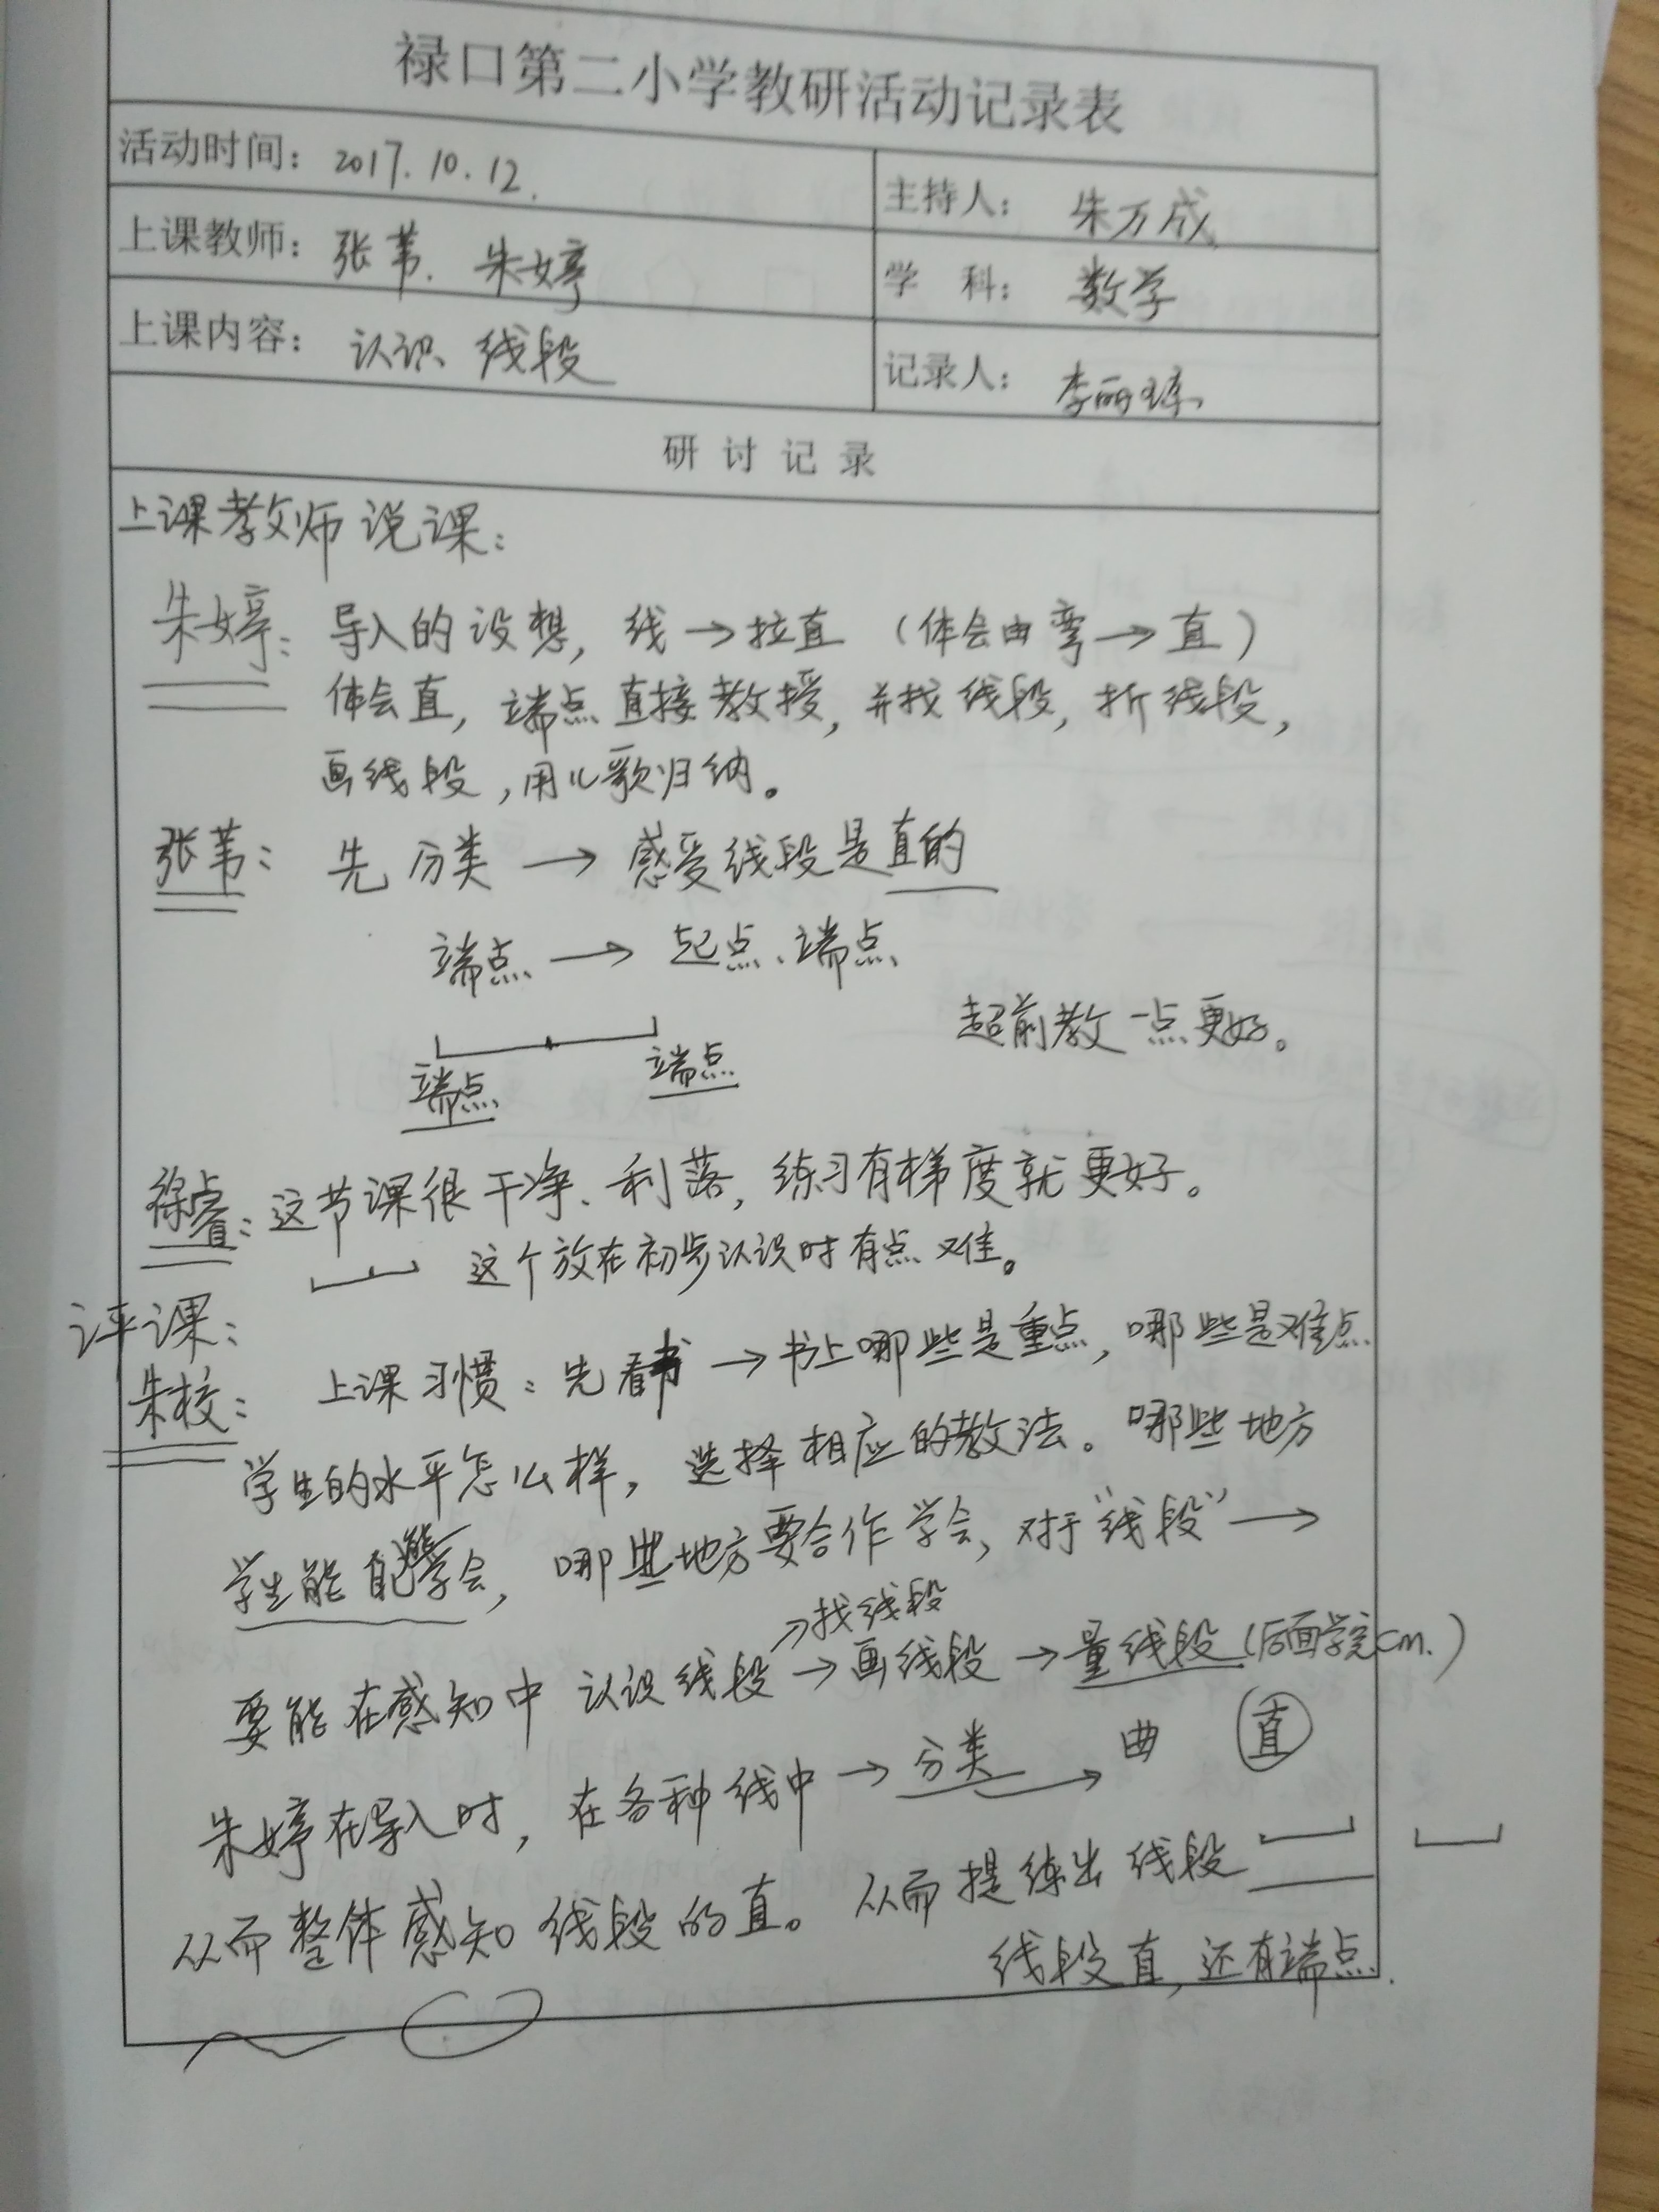 禄口第二小学教研活动记录表
活动时间：2017.10.12.
主持人：朱万成
上课教师：张苇、朱婷
学 科：数学
上课内容：认识线段
记录人：李丽
研 讨 记 录
上课教师说课：
朱婷：导入的设想，线→拉直（体会由弯→直）
体会直，端点直接教授，并找线段，折线段，
画线段，用儿歌归纳。
张苇：先分类→感受线段是直的
端点→起点、端点
超前教一点更好。
端点 端点
徐睿：这节课很干净、利落，练习有梯度就更好。
这个放在初步认识时有点难。
评课：
朱校：上课习惯：先看书→书上哪些是重点，哪些是难点
学生的水平怎么样，选择相应的教法。哪些地方
学生能自己学会，哪些地方要合作学会，对于“线段”→
→找线段
要能在感知中认识线段→画线段→量线段（后面学完cm.）
朱婷在导入时，在各种线中→分类→曲 直
从而整体感知线段的直。从而提练出线段
线段直，还有端点.